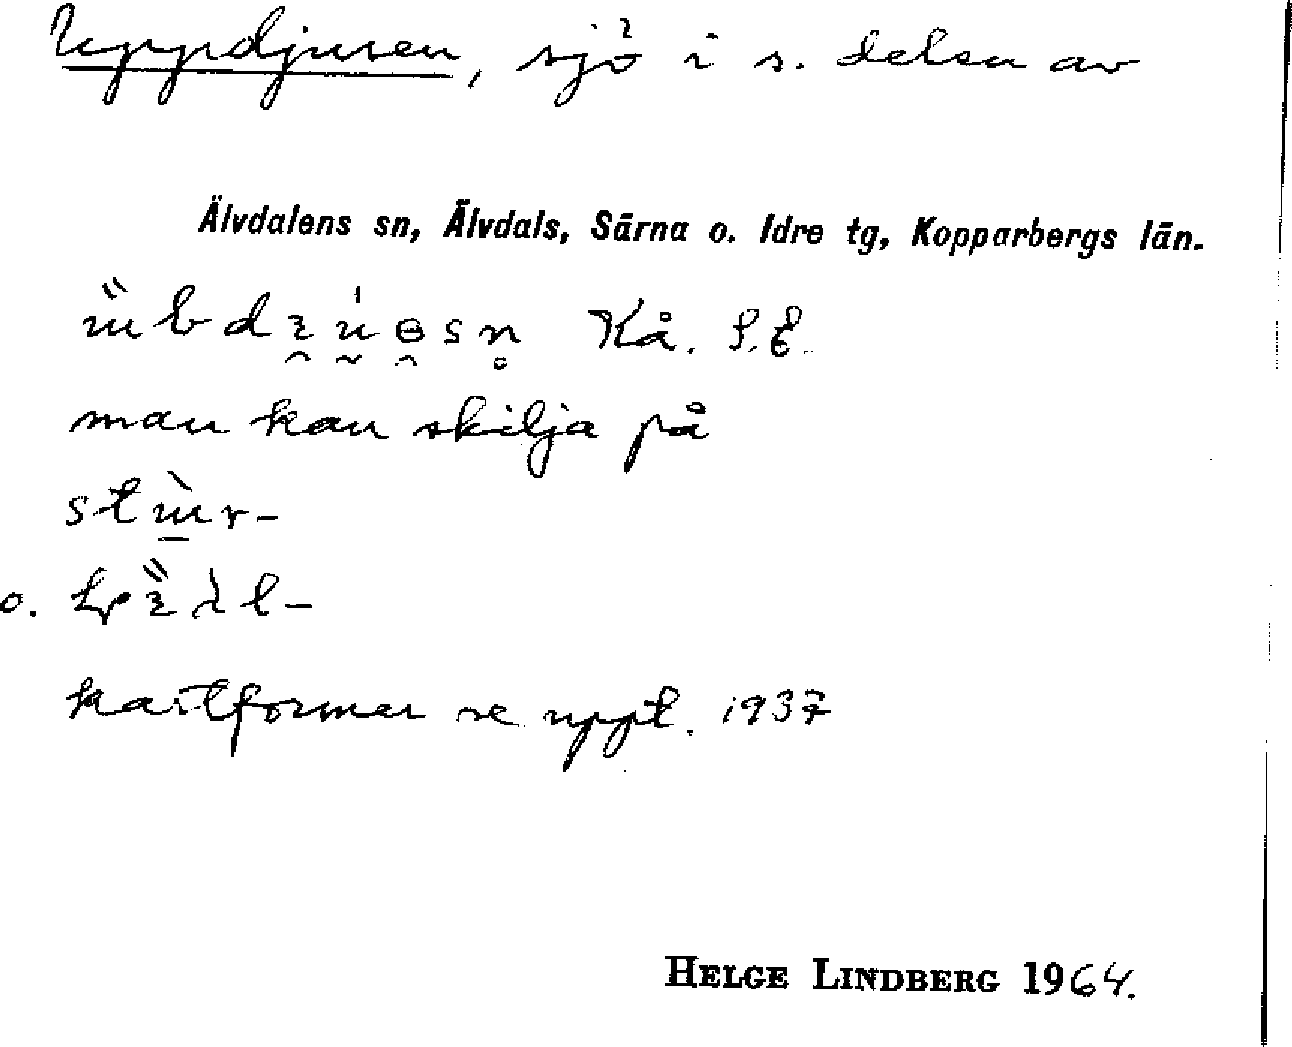 Uppdjusen, sjö i s. delen av
Älvdalens sn, Älvdals, Särna o. Idre tg, Kopparbergs län.
Kå. S.E.
man kan skilja på
o.
kartformer se uppt. 1937
HELGE LINDBERG 1964.